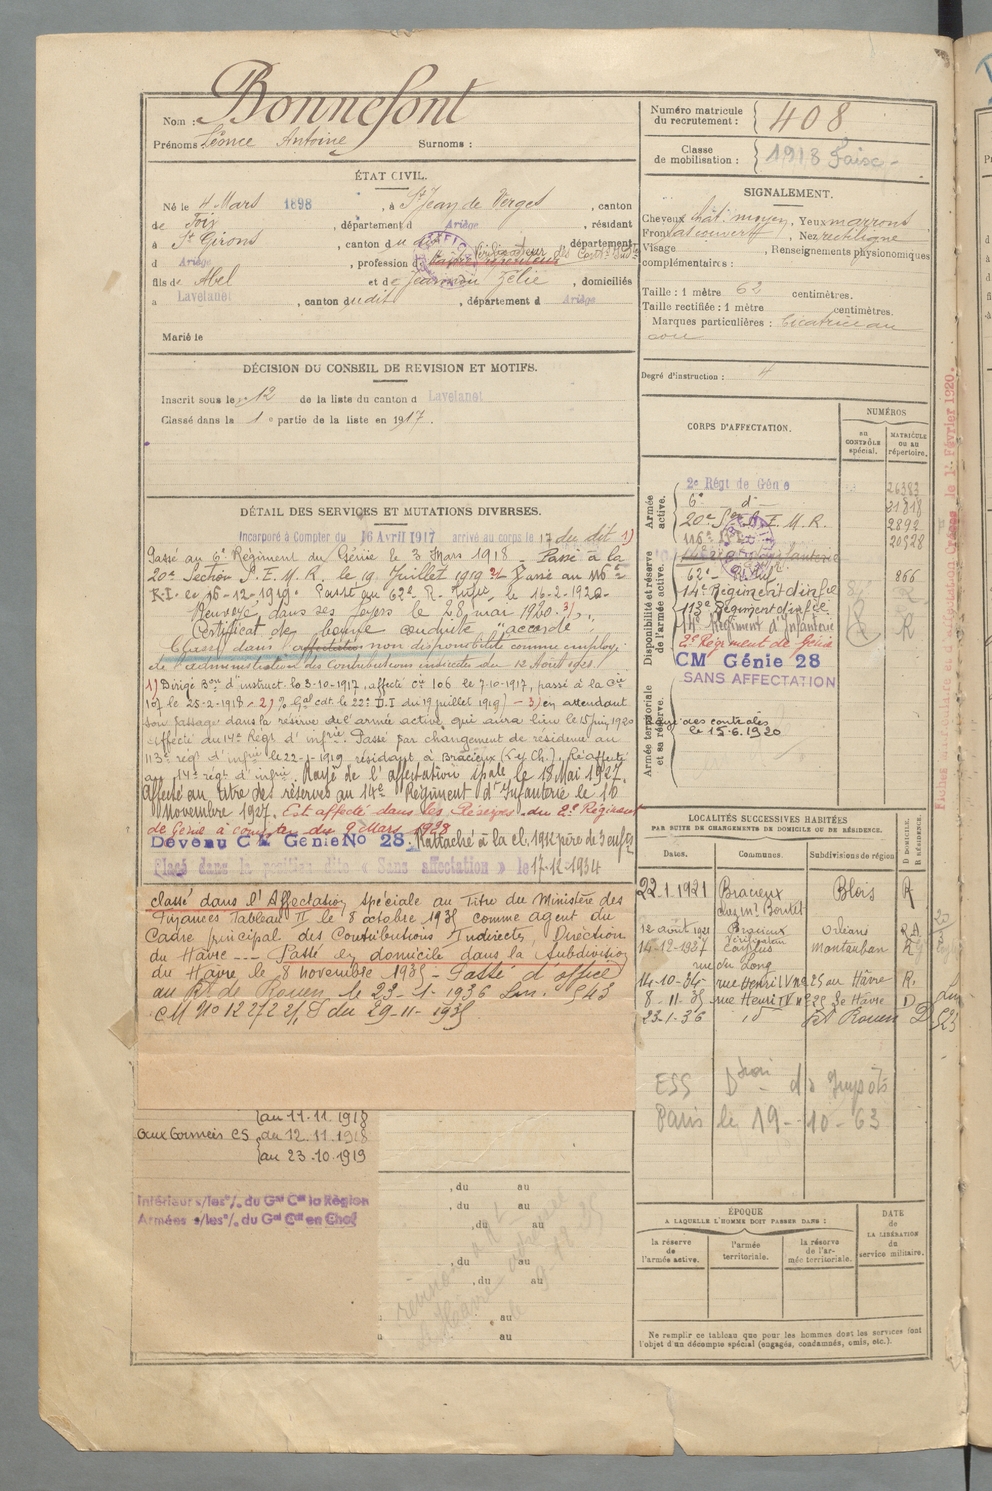 Nom : Bonnefont
Prénoms Léonce Antoine Surnoms :
ÉTAT CIVIL.
Né le 4 Mars 1898, à St Jean de Verges, canton
de Foix, département d Ariège, résidant
à St Girons, canton du dit, département
d Ariège, profession de Vérificateur des Contr. Ind.
fils de Abel et de Zélie, domiciliés
à Lavelanet, canton dudit, département d Ariège
Marié le
DÉCISION DU CONSEIL DE REVISION ET MOTIFS.
Inscrit sous le no 12 de la liste du canton d Lavelanet
Classé dans la 1e partie de la liste en 1917.
DÉTAIL DES SERVICES ET MUTATIONS DIVERSES.
Incorporé à Compter du 16 Avril 1917 arrivé au corps le 17 du dit 1)
Passé au 6e Régiment du Génie le 3 Mars 1918 – Passé à la
20e Section S. E. M. R. le 19 Juillet 1919 2) Passé au 116e
R.I. le 16-12-1919. Passé au 62e R. Inf. le 16-2-1920-
Renvoyé dans ses foyers le 28 mai 1920. 3)
Certificat de bonne conduite "accordé"
Classé dans l'affectation non disponibilité comme employé
de l'administration des Contributions indirectes du 12 Août 1921
1) Dirigé Bon d'instruct. le 3-10-1917, affecté Cie 106 le 7-10-1917, passé à la Cie
107 le 25-2-1918 - 2) Gal cdt. le 22e D.I du 19 juillet 1919) - 3) en attendant
son passage dans la réserve de l'armée active qui aura lieu le 15 juin 1920
affecté du 14e Régt d'infrie. Passé par changement de résidence au
113e régt d'infrie le 22-1-1919 résidant à Bracieux (L. et Ch.). Réaffecté
au 14e régt d'infrie. Rayé de l'affectation spale le 18 Mai 1927.
Affecté au titre des réserves au 14e Régiment d'Infanterie le 16
novembre 1927. Est affecté dans les Réserves du 2e Régiment
de Génie à compter du 9 Mars 1928
Devenu CM Génie No 28. Rattaché à la cl. 1912 père de 3 enfts
Placé dans la position dite « Sans affectation » le 17-12-1934
classé dans l'Affectation spéciale au Titre du Ministère des
Finances Tableau II le 8 octobre 1935 comme agent du
Cadre principal des Contributions Indirectes, Direction
du Havre --- Passé en domicile dans la Subdivision
du Havre le 8 novembre 1935 - Passé d'office
au de Rouen le 23-1-1936 543
CM No 12272 du 29-11-1935
au 11.11.1918
aux Armées CS du 12.11.1918
au 23.10.1919
Intérieur s/les o/. du Gal Ct la Région
Armées s/les o/. du Gal Ct en Chef
, du au
, du au
, du au
, du au
, du au
au
au
Numéro matricule du recrutement : 408
Classe de mobilisation : 1918
SIGNALEMENT.
Cheveux chât. moyen, Yeux marrons
Front découvert, Nez rectiligne
Visage , Renseignements physionomiques
complémentaires :
Taille : 1 mètre 62 centimètres.
Taille rectifiée : 1 mètre centimètres.
Marques particulières : Cicatrice au
cou
Degré d'instruction : 4
CORPS D'AFFECTATION.
NUMÉROS
au CONTRÔLE spécial.
MATRICULE ou au répertoire.
Armée active.
2e Régt de Génie 26383
6e d° 31818
20e Son S.E.M.R. 2892
116e 20528
Disponibilité et réserve de l'armée active.
14e Régiment d'Infanterie
62e Rt Inf 866
14e Régiment d'infie R
113e Régiment d'infie
14e Régiment d'Infanterie R
2e Régiment de Génie
CM Génie 28
SANS AFFECTATION
Armée territoriale et sa réserve.
Rayé des contrôles
le 15.6.1920
LOCALITÉS SUCCESSIVES HABITÉES
PAR SUITE DE CHANGEMENTS DE DOMICILE OU DE RÉSIDENCE.
Dates. Communes. Subdivisions de région D DOMICILE. R RÉSIDENCE.
22.1.1921 Bracieux Blois R
chez Mr Boulet
12 août 1921 Bracieux Orléans
14-12-1927 Caylus Montauban R
rue du Long
14-10-34 rue Henri IV no 25 au Hâvre R.
8-11-35 rue Henri IV no 25 Le Hâvre D.
23-1-36 id Rouen D
ESS Don ds Impôts
Paris le 19-10-63
ÉPOQUE
A LAQUELLE L'HOMME DOIT PASSER DANS :
la réserve de l'armée active.
l'armée territoriale.
la réserve de l'armée territoriale.
DATE de LA LIBÉRATION du service militaire.
Ne remplir ce tableau que pour les hommes dont les services font
l'objet d'un décompte spécial (engagés, condamnés, omis, etc.).